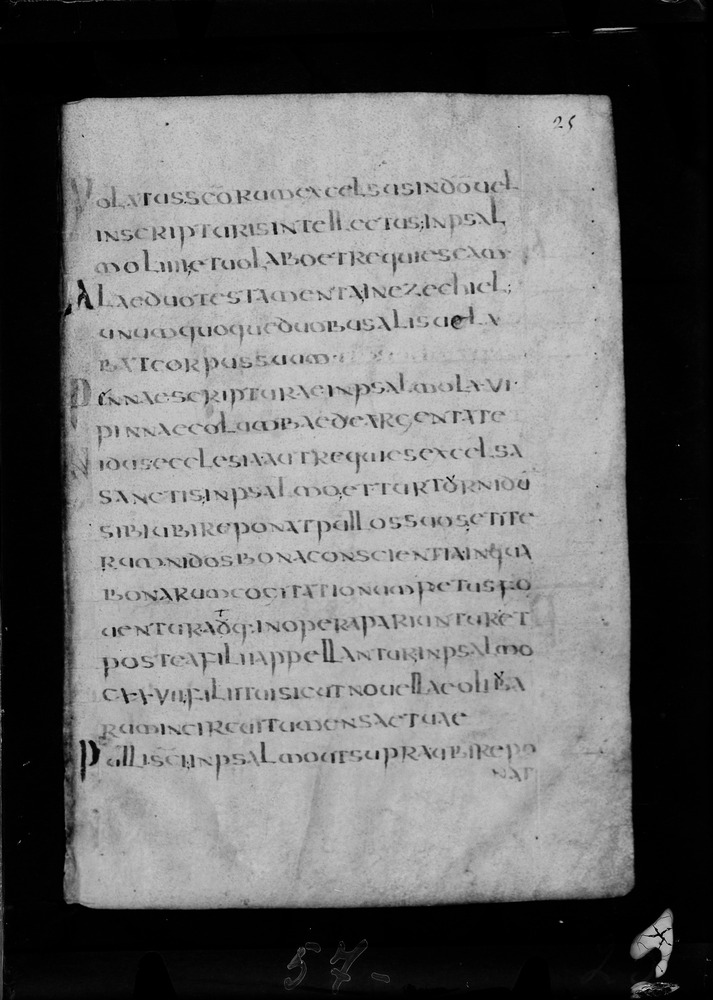 25
Volatus scōrum excelsus in dō uel
in scripturis intellectus; in psal
mo liiii; et uolabo et requiescam·
Alae duo testamenta; in ezechiel;
unumquoque duobus alis uela
bat corpus suum·
Pinnae scripturae in psalmo LXVI·
pinnae columbae deargentate
Nidus ecclesia aut requies excelsa
sanctis; in psalmo, et turtur nidū
sibi ubi reponat pullos suos et ite
rum nidos bona conscientia in qua
bonarum cogitationum fetus fo
uentur
in opera pariuntur et
postea filii appellantur; in psalmo
CXXVII; filii tui sicut nouellae oliua
rum in circuitu mensae tuae
Pulli scī; in psalmo ut supra ubi repo
nat
57-